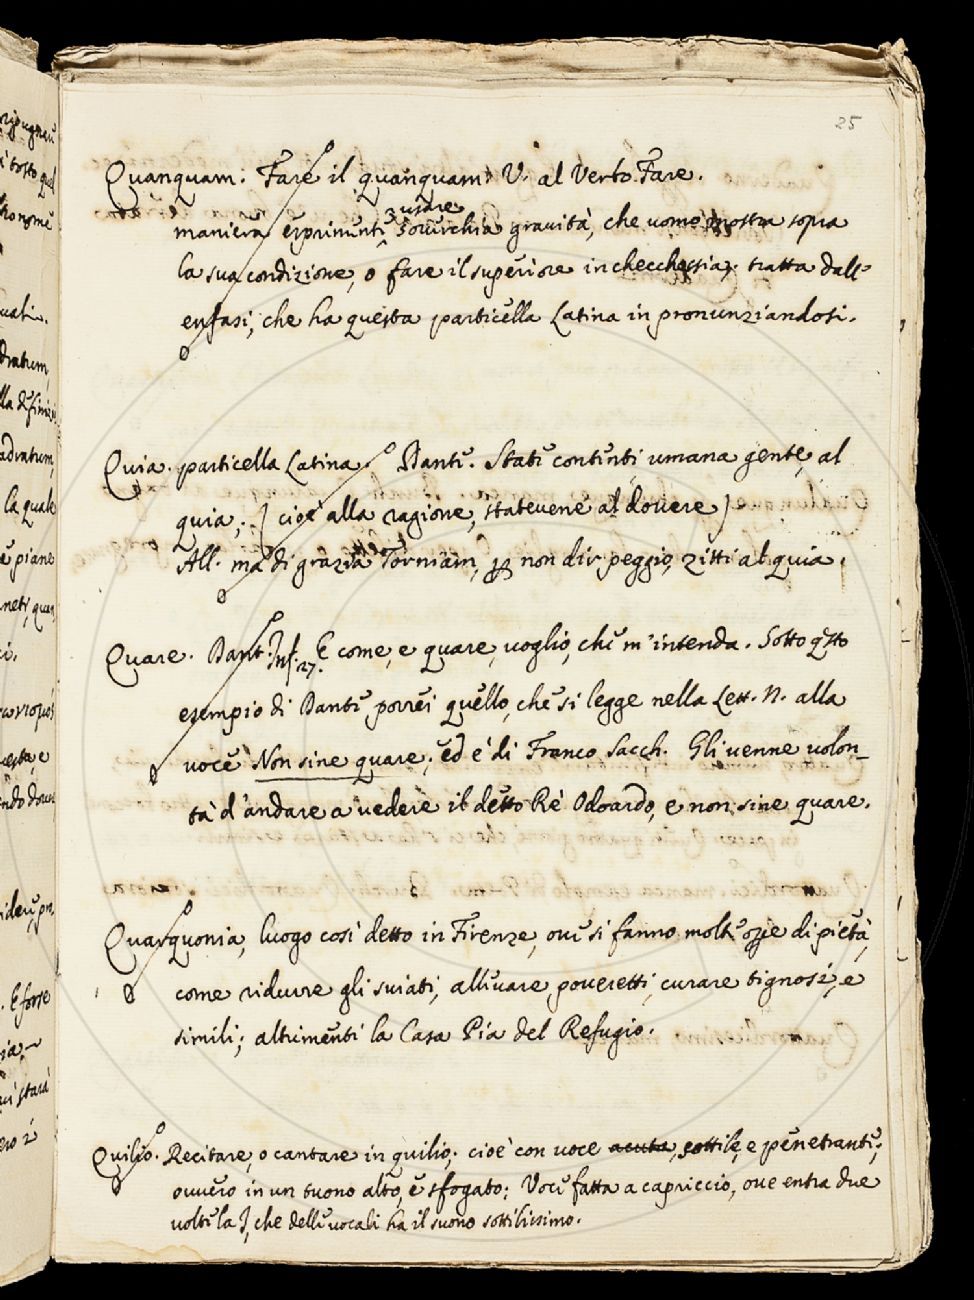 25
Quanquam. Fare il quanquam. V. al Verbo Fare.
usare
maniera esprimente soverchia gravità, che uomo mostra sopra
la sua condizione, o fare il superiore in checchessia; tratta dall'
enfasi, che ha questa particella Latina in pronunziandosi.
Quia. particella Latina. Dante. State contenti umana gente, al
quia; [cioè alla ragione, statevene al dovere]
All. ma di grazia Torniam, per non dir peggio, zitti al quia.
Quare. Dant. Inf. 27. E come, e quare, voglio, che m'intenda. Sotto q.sto
esempio di Dante porrei quello, che si legge nella Lett. N. alla
voce Non sine quare; ed è di Franco Sacch. Gli venne volon-
tà d'andare a vedere il detto Re Odoardo, e non sine quare.
Quarquonia, luogo così detto in Firenze, ove si fanno molte opje di pietà,
come ridurre gli sviati, allevare poveretti, curare tignosi, e
simili; altrimenti la Casa Pia del Refugio.
Quilio. Recitare, o cantare in quilio; cioè con voce acuta, sottile, e penetrante;
ovvero in un tuono alto, e sfogato: Voce fatta a capriccio, ove entra due
volte la I, che delle vocali ha il suono sottilissimo.